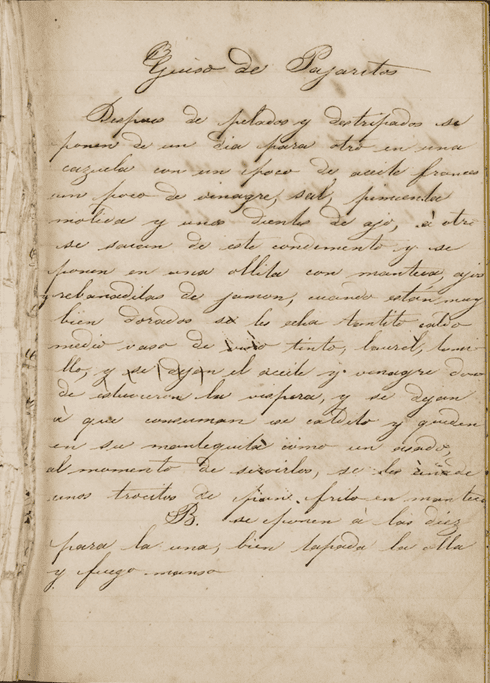 Guiso de Pajaritos
Despues de pelados y destripados se
ponen de un dia para otro en una
cazuela con un poco de aceite frances
un poco de vinagre, sal, pimienta
molida y unos dientes de ajo, à otro
se sacan de este condimento y se
ponen en una ollita con manteca, ajos
y rebanaditas de jamon, cuando están muy
bien dorados se les echa tantito caldo
medio vaso de vino tinto, laurel, tomi-
llo, y se dejan el aceite y vinagre don
de estuvieron la vispera, y se dejan
à que consuman se caldito y queden
en su mantequita como un asado,
al momento de servirlos, se les añade
unos trocitos de pan frito en manteca
B. se ponen à las diez
para la una, bien tapada la olla
y fuego manso